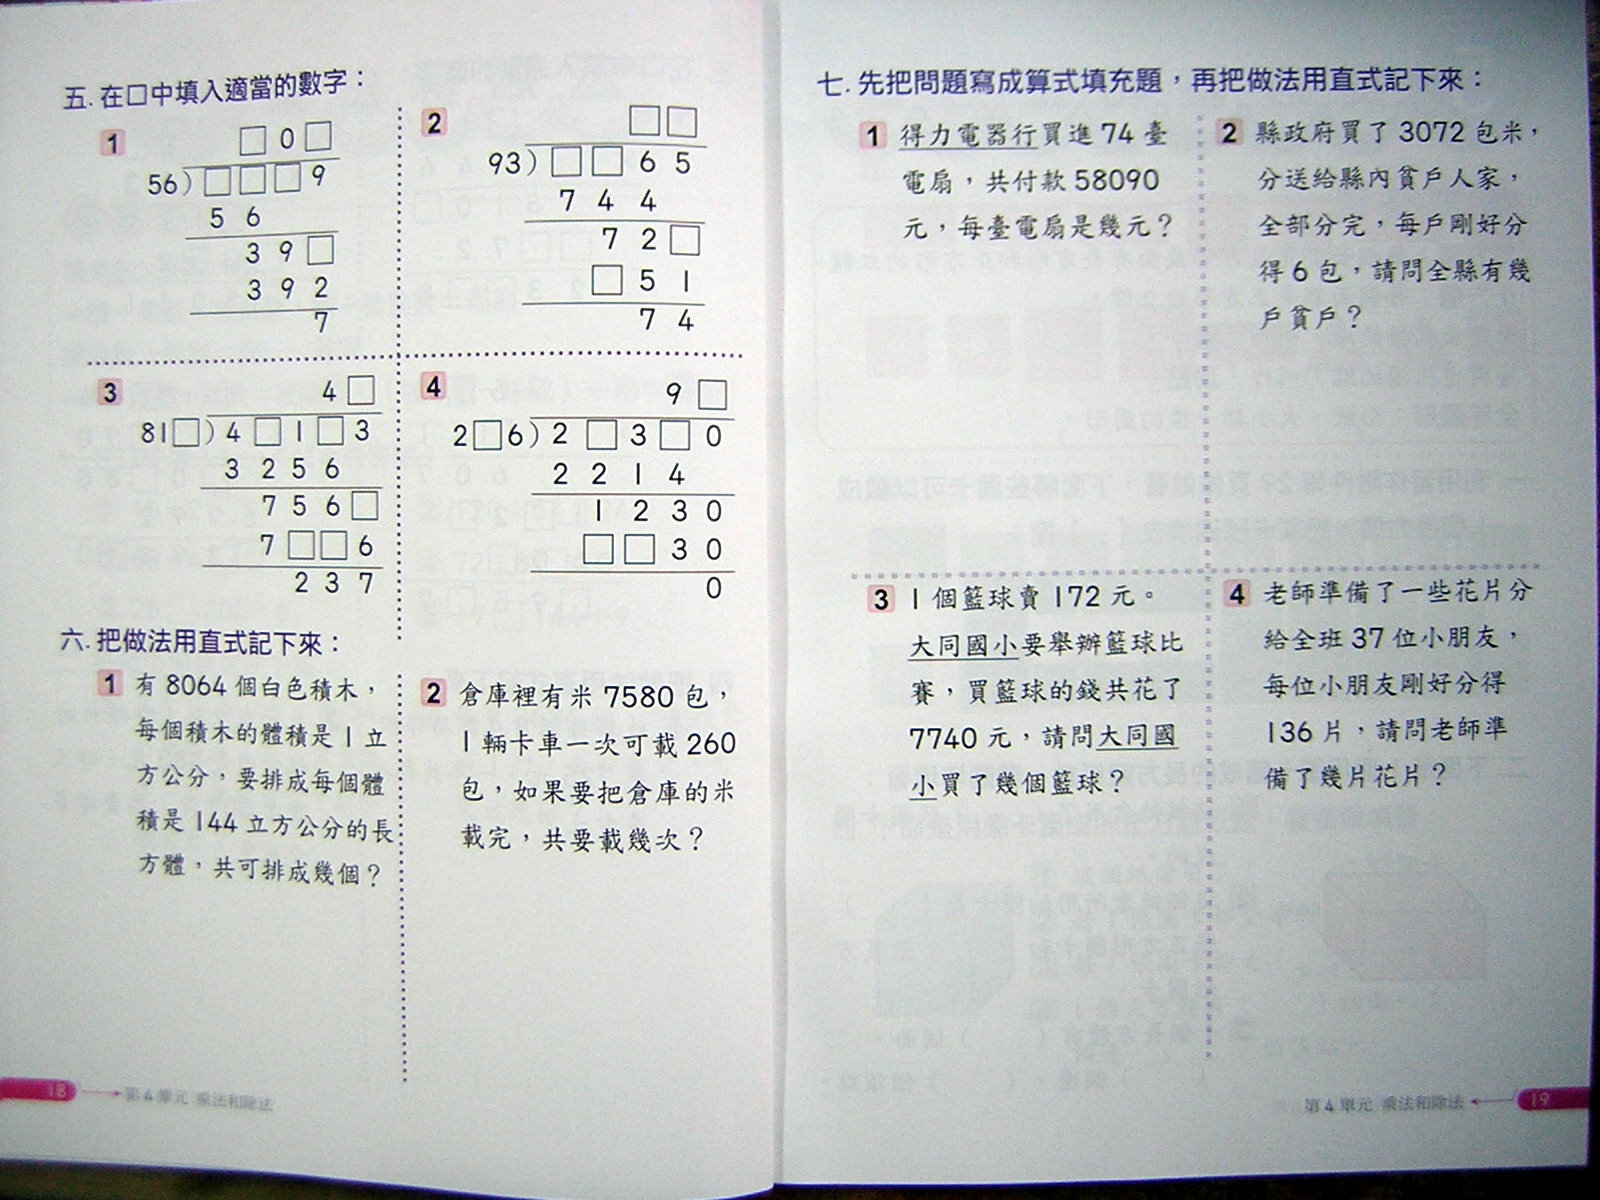 五. 在□中填入適當的數字：
1
□ 0 □
56) □ □ □ 9
5 6
3 9 □
3 9 2
7
2
□ □
93) □ □ 6 5
7 4 4
7 2 □
□ 5 1
7 4
3
4 □
81□) 4 □ 1 □ 3
3 2 5 6
7 5 6 □
7 □ □ 6
2 3 7
4
9 □
2□6) 2 □ 3 □ 0
2 2 1 4
1 2 3 0
□ □ 3 0
0
六. 把做法用直式記下來：
1 有 8064 個白色積木，
每個積木的體積是 1 立
方公分，要排成每個體
積是 144 立方公分的長
方體，共可排成幾個？
2 倉庫裡有米 7580 包，
1 輛卡車一次可載 260
包，如果要把倉庫的米
載完，共要載幾次？
18 第 4 單元 乘法和除法
七. 先把問題寫成算式填充題，再把做法用直式記下來：
1 得力電器行買進 74 臺
電扇，共付款 58090
元，每臺電扇是幾元？
2 縣政府買了 3072 包米，
分送給縣內貧戶人家，
全部分完，每戶剛好分
得 6 包，請問全縣有幾
戶貧戶？
3 1 個籃球賣 172 元。
大同國小要舉辦籃球比
賽，買籃球的錢共花了
7740 元，請問大同國
小買了幾個籃球？
4 老師準備了一些花片分
給全班 37 位小朋友，
每位小朋友剛好分得
136 片，請問老師準
備了幾片花片？
第 4 單元 乘法和除法 19